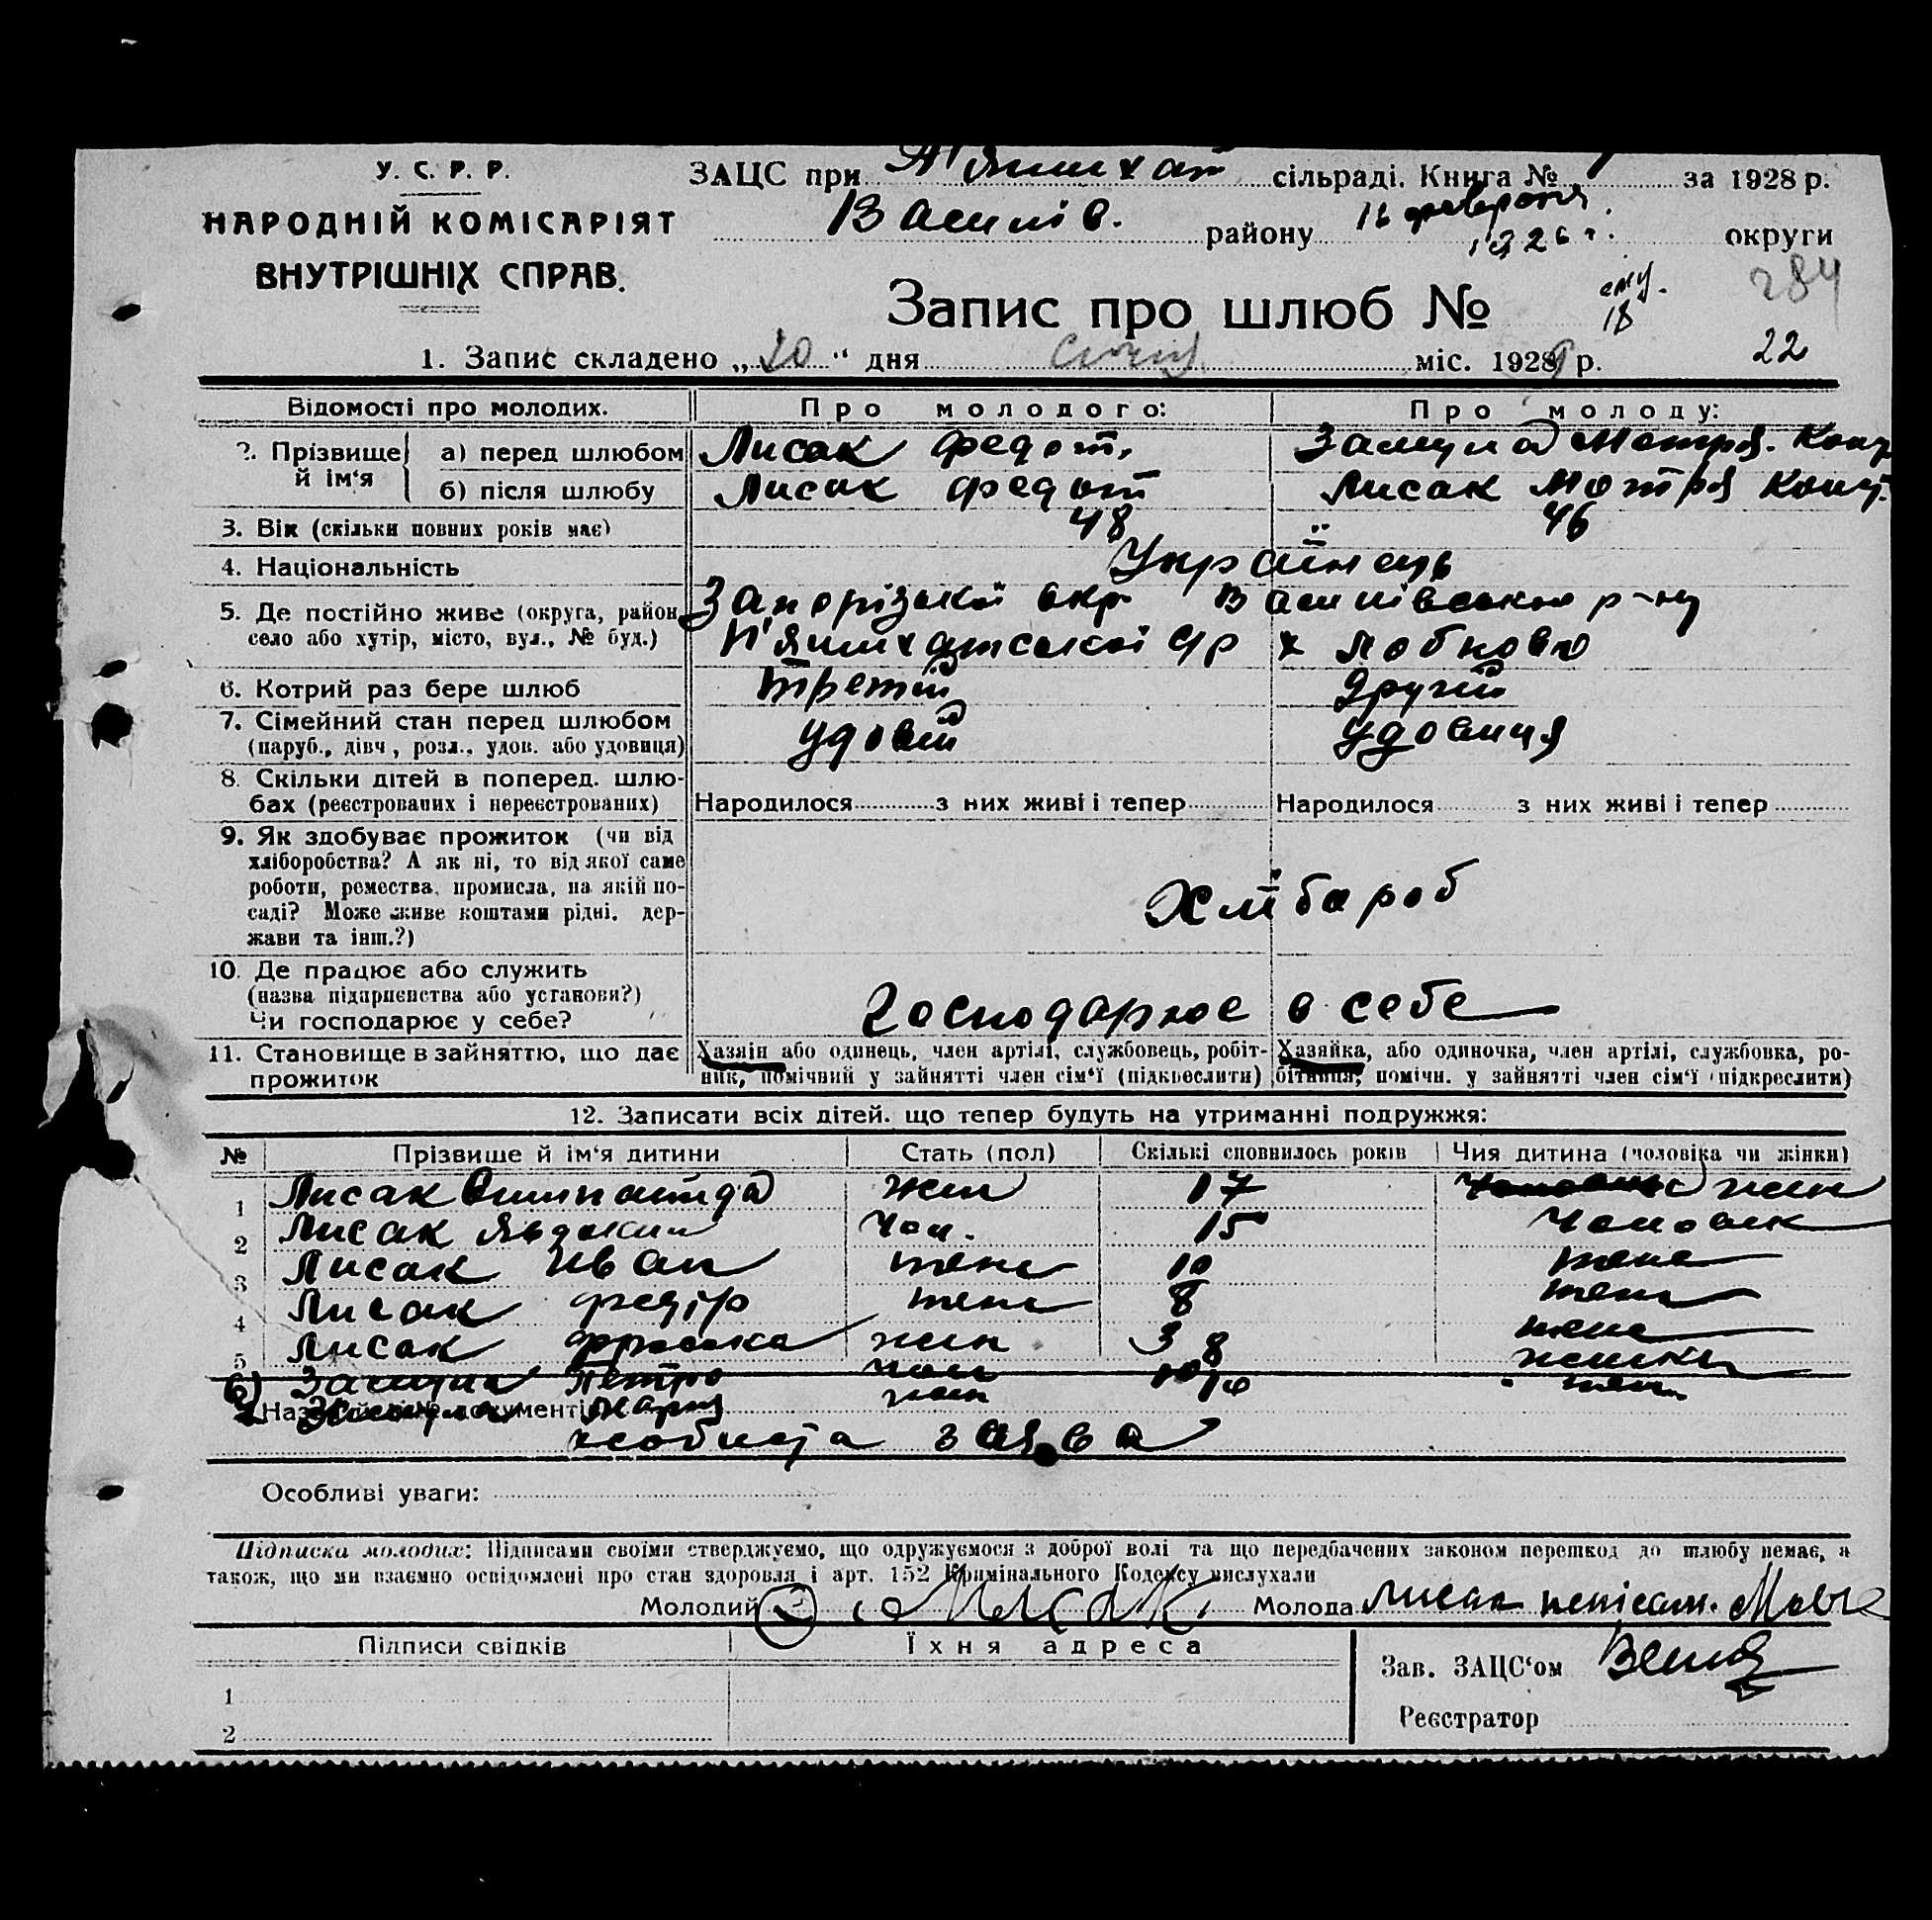 У. С. Р. Р.
НАРОДНІЙ КОМІСАРІЯТ
ВНУТРІШНІХ СПРАВ.
ЗАЦС при П'ятихат сільраді. Книга № 1 за 1928 р.
Василів. району округи
16 февраля
1926 г.
Запис про шлюб №
18
284
22
1. Запис складено „20“ дня січня міс. 1929 р.
Відомості про молодих. Про молодого: Про молоду:
2. Прізвище й ім‘я
а) перед шлюбом Лисак Федот. Мотря.
б) після шлюбу Лисак Федот Лисак Мотря
3. Вік (скільки повних років має) 48 46
4. Національність Українець
5. Де постійно живе (округа, район, село або хутір, місто, вул., № буд.) Запорізької окр. Василівського р-ну
П'ятихатської с/р х
6. Котрий раз бере шлюб третій другий
7. Сімейний стан перед шлюбом (паруб., дівч., розл., удов. або удовиця) удовій удовиця
8. Скільки дітей в поперед. шлюбах (реєстрованих і нереєстрованих) Народилося з них живі і тепер Народилося з них живі і тепер
9. Як здобуває прожиток (чи від хліборобства? А як ні, то від якої саме роботи, ремества, промисла, на якій посаді? Може живе коштами рідні, держави та інш.?) Хлібароб
10. Де працює або служить (назва підприємства або установи?) Чи господарює у себе? Господарює в себе
11. Становище в зайняттю, що дає прожиток
Хазяїн або одинець, член артілі, службовець, робітник, помічний у зайнятті член сім‘ї (підкреслити)
Хазяйка, або одиночка, член артілі, службовка, робітниця, помічн. у зайнятті член сім‘ї (підкреслити)
12. Записати всіх дітей, що тепер будуть на утриманні подружжя:
№ Прізвище й ім‘я дитини Стать (пол) Скількі сповнилось років Чия дитина (чоловіка чи жінки)
1 Лисак жін 17 жін
2 Лисак Явдоким Чол. 15 Чоловік
3 Лисак Иван тоже 10 тоже
4 Лисак Федір тоже 8 тоже
5 Лисак Фроська жін 3 тоже
6) Петро чол
7 Мария жін
Назва документів
особиста заява
Особливі уваги:
Підписка молодих: Підписами своїми стверджуємо, що одружуємося з доброї волі та що передбачених законом перешкод до шлюбу немає, а
також, що ми взаємно освідомлені про стан здоровля і арт. 152 Кримінального Кодексу вислухали
Молодий Лисак Молода Лисак
Підписи свідків Їхня адреса
1
2
Зав. ЗАЦС‘ом
Реєстратор